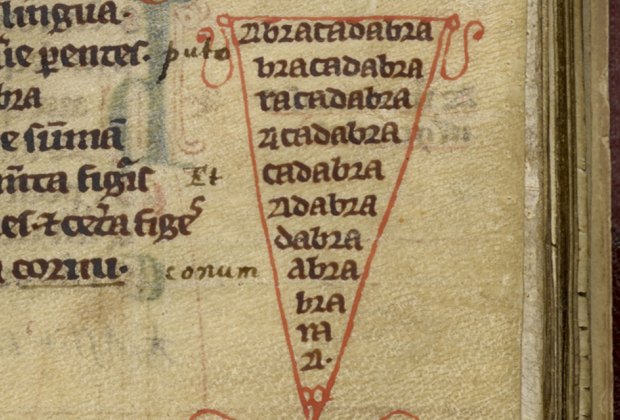 lingua.
sie ꝑentes. puto
bra
e sūmā
m̄ta figīs Et
es ⁊ cet̄a fige
cornu. conum
Abracadabra
bracadabra
racadabra
Acadabra
cadabra
Adabra
dabra
abra
bra
ra
A.